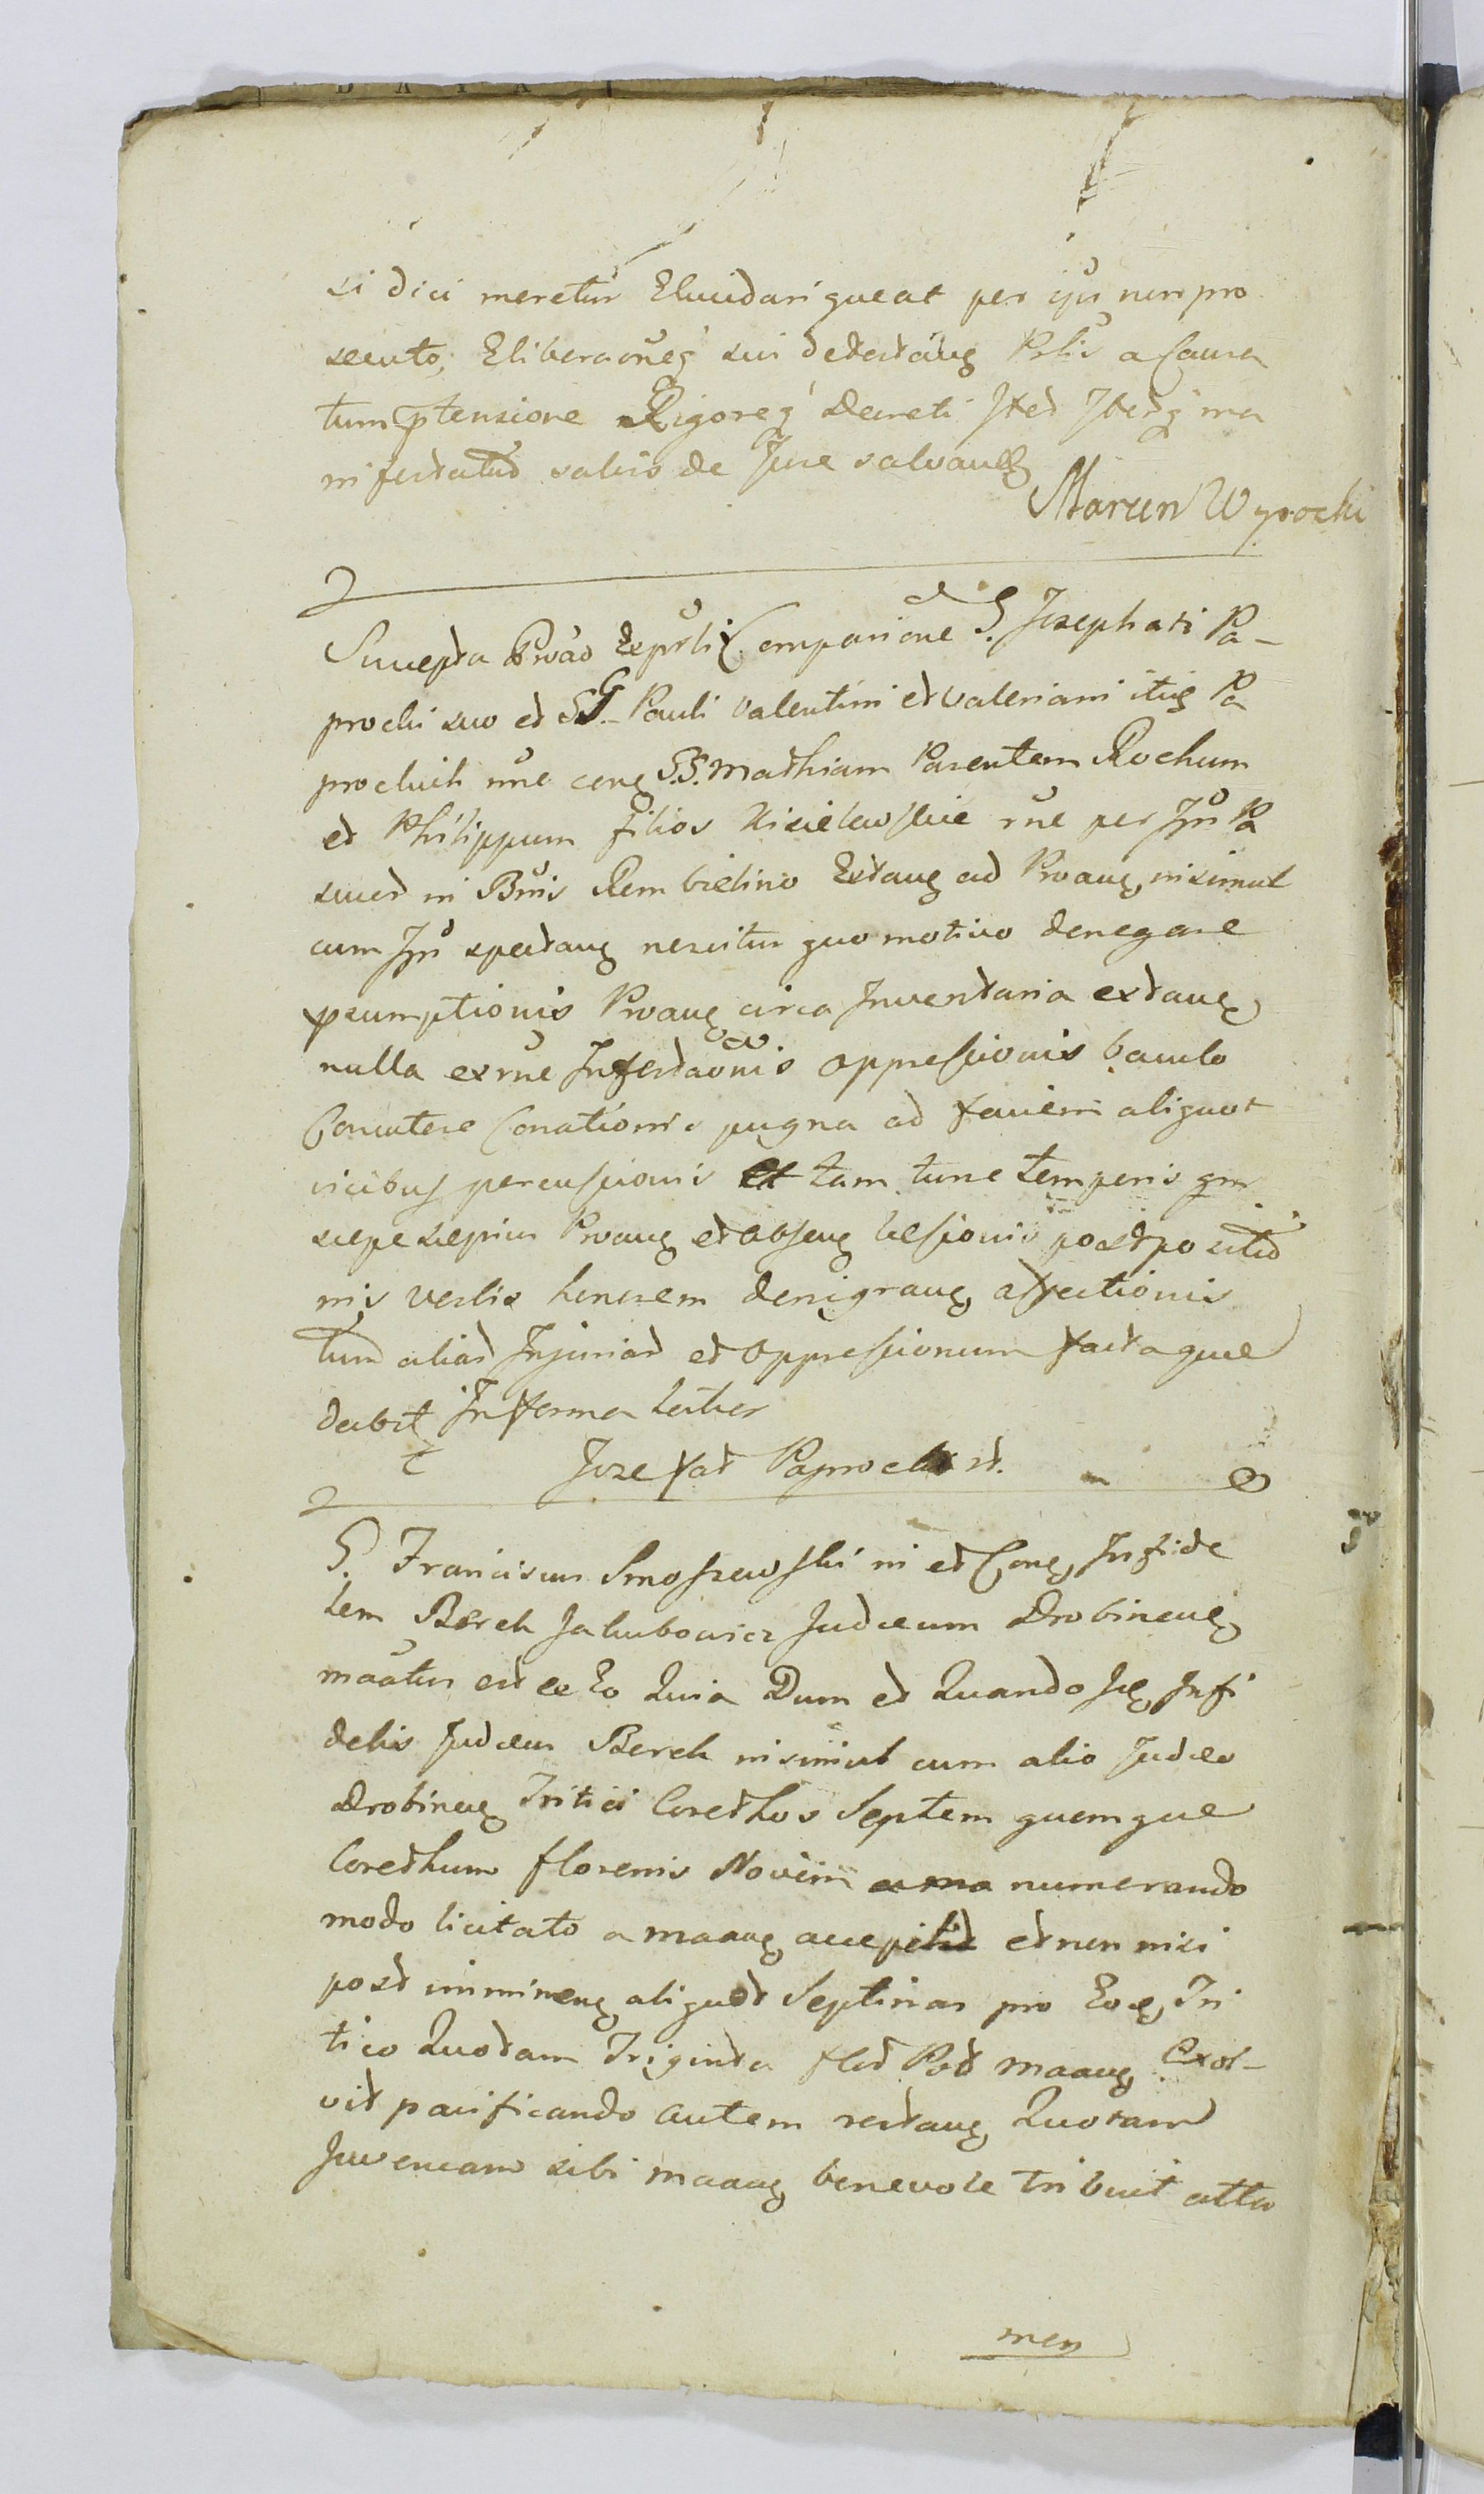 si dici meretur Elucidari queat per ips non pro
secuto, Eliberaōneq sui detestang Prlis a Causa
tum ptensione Rigoreq Decreti Sted Sterq ma
nifestatud salvis de Jure salvang
Marcin Wysocki
Suscepta Pwao Exprsti Comparicione G. Josephati Pa-
procki suo et GG. Pauli Valentini et Valeriani itiq Pa
prockich nne conq G.G. Mathiam Parentem Rochum
et Philippum filios Kisielewskie rne per Jpn Pa
sued in Bnis Rembielino Extanq ad Pwanq, insimul
cum Jpn spectanq nescitur quo motivo denegare
psumptionis Pwanq circa Inventaria extanq
nulla ex rne Infestaonis oppressionis baculo
Concutere Conationis pugna ad faciem aliquot
vicibus percussionis et tam tunc temporis qm
saepe saepius Pwanq et absenq laesionis postpositid
nis verbis honorem denigranq affectionis
tum aliad Injuriad et oppressionum facta quae
dabit In forma latior
Jozefat Paprocki st.
G. Franciscus Smoszewski in et Conq, Infide
lem Berek Jakubowicz Judaeum Drobinenq
maatur est ee Eo Quia Dum et Quando Jq Infi
delis Judaeus Berek insimul cum alio Judaeo
Drobinenq Tritici Corethos Septem quemque
Corethum florenis Novem numerando
modo licitato a maanq accepit et non nisi
post imminenq aliquot Septinas pro Eoq Tri
tico Quotam Triginta flod Pod maanq, Exol-
vit pacificando autem restanq Quotam
Juvencam sibi maanq benevole tribuit atta
men